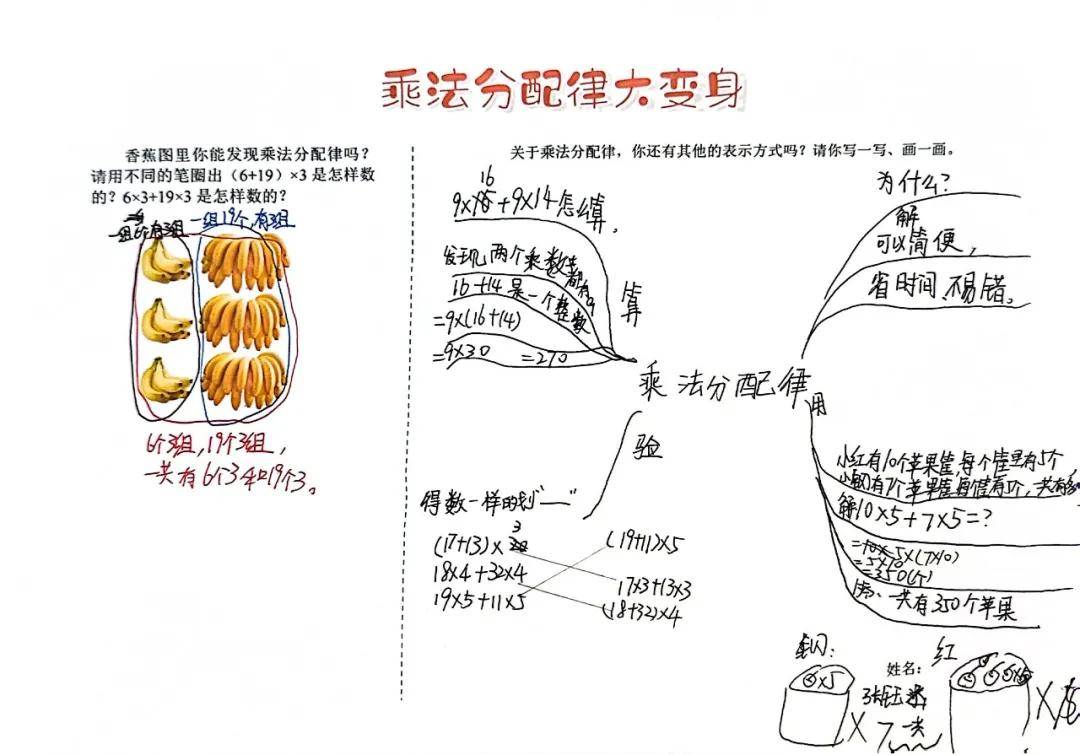 乘法分配律大变身
香蕉图里你能发现乘法分配律吗？
请用不同的笔圈出（6+19）×3 是怎样数
的？6×3+19×3 是怎样数的？
一组6个,有3组
一组19个,有3组
6个3组,19个3组,
一共有6个3和19个3。
关于乘法分配律，你还有其他的表示方式吗？请你写一写、画一画。
16
9×15+9×14怎么算,
发现两个乘数
都有9
16+14是一个整数
=9×(16+14)
=9×30 =270
算
乘法分配律
为什么?
解
可以简便,
省时间、不易错。
验
得数一样的划“——”
(17+13)×3
18×4+32×4
19×5+11×5
(19+11)×5
17×3+13×3
(18+32)×4
用
小红有10个苹果筐,每个筐里有5个
解10×5+7×5=?
=5×(7×10)
=5×70
=350(个)
答、一共有350个苹果
红
姓名：
×5
×7